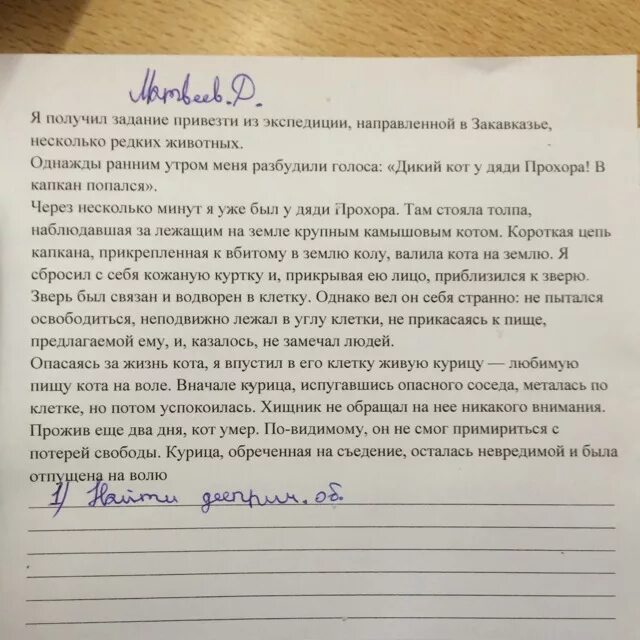 Матвеев. Д.
Я получил задание привезти из экспедиции, направленной в Закавказье,
несколько редких животных.
Однажды ранним утром меня разбудили голоса: «Дикий кот у дяди Прохора! В
капкан попался».
Через несколько минут я уже был у дяди Прохора. Там стояла толпа,
наблюдавшая за лежащим на земле крупным камышовым котом. Короткая цепь
капкана, прикрепленная к вбитому в землю колу, валила кота на землю. Я
сбросил с себя кожаную куртку и, прикрывая ею лицо, приблизился к зверю.
Зверь был связан и водворен в клетку. Однако вел он себя странно: не пытался
освободиться, неподвижно лежал в углу клетки, не прикасаясь к пище,
предлагаемой ему, и, казалось, не замечал людей.
Опасаясь за жизнь кота, я впустил в его клетку живую курицу — любимую
пищу кота на воле. Вначале курица, испугавшись опасного соседа, металась по
клетке, но потом успокоилась. Хищник не обращал на нее никакого внимания.
Прожив еще два дня, кот умер. По-видимому, он не смог примириться с
потерей свободы. Курица, обреченная на съедение, осталась невредимой и была
отпущена на волю
1) Найти дееприч. об.